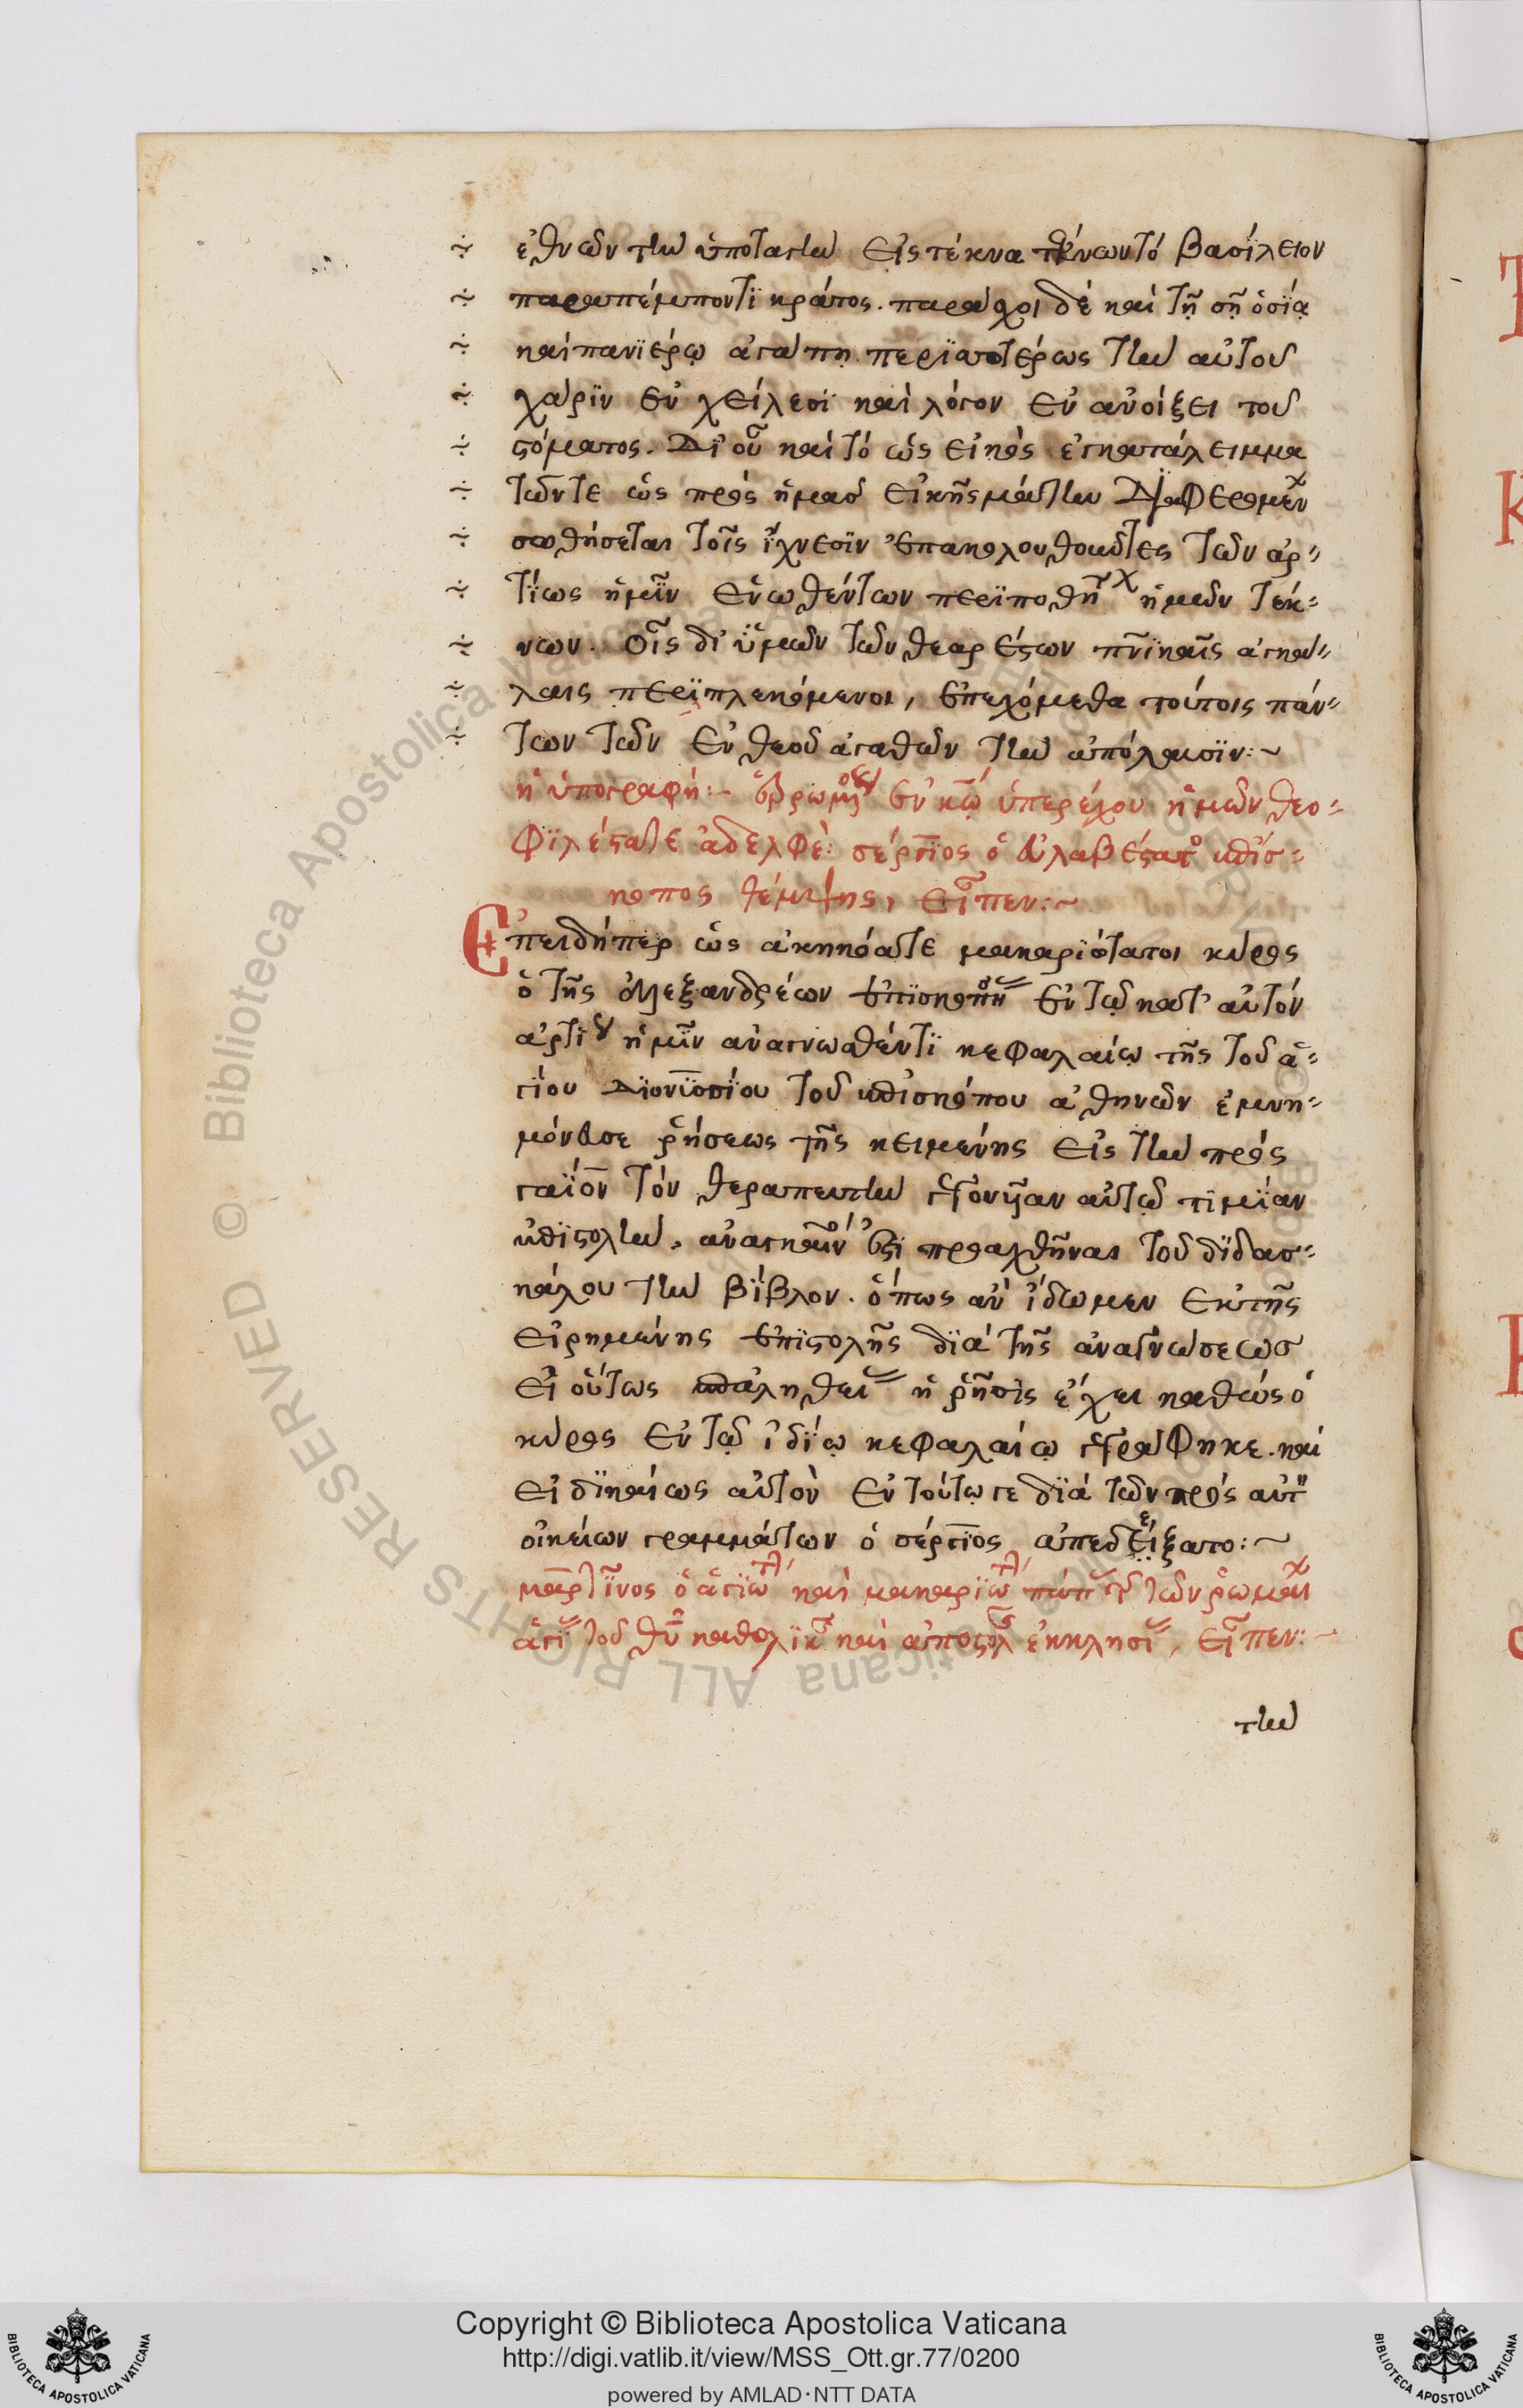 ἐθνῶν τὴν ὑποταγὴν εἰς τέκνα τέκνων τὸ βασίλειον
παραπέμποντι κράτος. παράσχοι δὲ καὶ τῇ σῇ ὁσίᾳ
καὶ πανϊέρῳ ἀγάπῃ περϊττοτέρως τὴν αὐτοῦ
χάρϊν ἐν χείλεσϊ καὶ λόγον ἐν ἀνοίξει τοῦ
στόματος. Δϊ' οὗ καὶ τὸ ὡς εἰκὸς ἐγκατάλειμμα
τῶν τε ὡς πρὸς ἡμᾶς εἰκῆ μάτην
σωθήσεται τοῖς ἴχνεσϊν ἐπακολουθοῦντες τῶν ἀρ-
τίως ἡμῖν ἑνωθέντων περϊποθή ἡμῶν τέκ-
νων. οἷς δι' ὑμῶν τῶν θεαρέστων πνϊκαῖς ἀγκά-
λαις περϊπλεκόμενοι, ἐπευχόμεθα τούτοις πάν-
των τῶν ἐν θεοῦ ἀγαθῶν τὴν ἀπόλαυσϊν:~
ἡ ὑπογραφή:- ἐρρωμένος ἐν κω ὑπερεύχου ἡμῶν θεο-
φϊλέστατε ἀδελφέ: σέργϊος ὁ εὐλαβέστατος ἐπίσ-
κοπος θέμψης, εἶπεν:~
Ἐπειδήπερ ὡς ἀκηκόατε μακαρϊώτατοι κύρος
ὁ τῆς ἀλεξανδρέων ἐπϊσκοπ ἐν τῷ κατ' αὐτὸν
ἀρτί ἡμῖν ἀναγνωσθέντϊ κεφαλαίῳ τῆς τοῦ ἁ-
γίου Διονϊσίου τοῦ ἐπισκόπου ἀθηνῶν ἐμνη-
μόνευσε ῥήσεως τῆς κειμένης εἰς τὴν πρὸς
γαϊον τὸν θεραπευτὴν γεγονυῖαν αὐτῷ τϊμίαν
ἐπϊστολὴν, ἀναγκαῖον ἐστϊ προαχθῆναι τοῦ δϊδασ-
κάλου τὴν βίβλον. ὅπως ἂν ἴδωμεν ἐκ τῆς
εἰρημένης ἐπϊστολῆς δϊὰ τῆς ἀναγνώσεως
εἰ οὕτως ἐπ' ἀληθεί ἡ ῥῆσις ἔχει καθὼς ὁ
κύρος ἐν τῷ ἰδίῳ κεφαλαίῳ γεγράφηκε. καὶ
εἰ δϊκαίως αὐτὸν ἐν τούτῳ γε δϊὰ τῶν πρὸς αὐτ
οἰκείων γραμμάτων ὁ σέργϊος ἀπεδέξατο:~
μαρτῖνος ὁ ἁγϊώτ καὶ μακαρϊώτ πάπ τῶν ῥωμαί
ἁγί τοῦ θυ καθολϊκ καὶ ἀποστολ ἐκκλησί, εἶπεν:-
τὴν
Copyright © Biblioteca Apostolica Vaticana
http://digi.vatlib.it/view/MSS_Ott.gr.77/0200
powered by AMLAD·NTT DATA
BIBLIOTECA APOSTOLICA VATICANA
BIBLIOTECA APOSTOLICA VATICANA